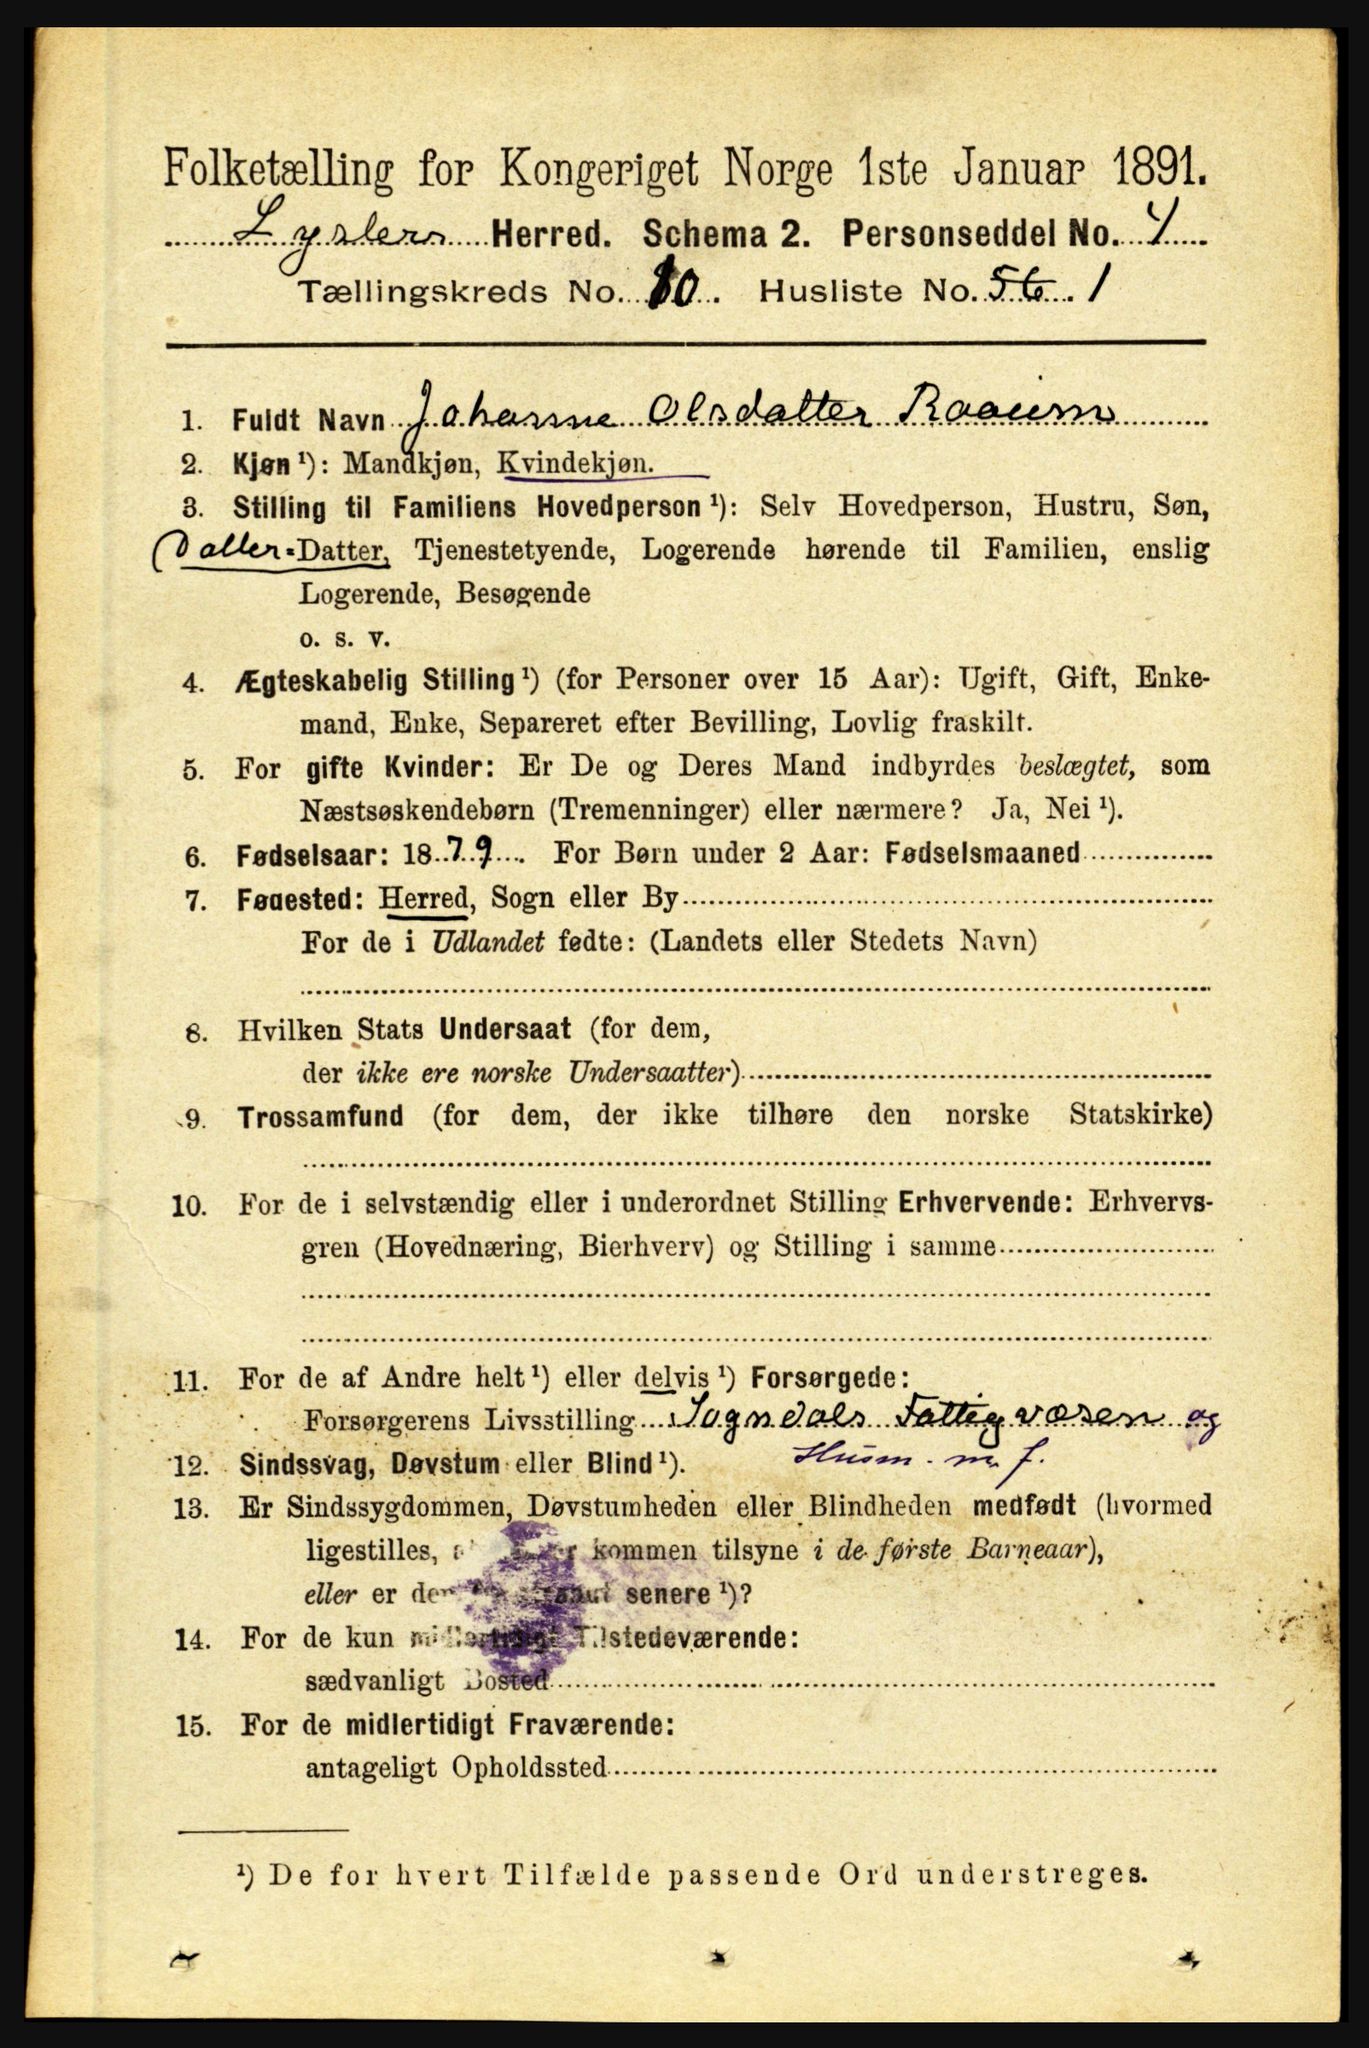 Folketælling for Kongeriget Norge 1ste Januar 1891.
Lysters Herred. Schema 2. Personseddel No. 4
Tællingskreds No. 10. Husliste No. 56. 1
1. Fuldt Navn Johanne Olsdatter Raaum
2. Kjøn ¹): Mandkjøn, Kvindekjøn.
3. Stilling til Familiens Hovedperson ¹): Selv Hovedperson, Hustru, Søn,
(Datter-Datter, Tjenestetyende, Logerende hørende til Familien, enslig
Logerende, Besøgende
o. s. v.
4. Ægteskabelig Stilling ¹) (for Personer over 15 Aar): Ugift, Gift, Enke-
mand, Enke, Separeret efter Bevilling, Lovlig fraskilt.
5. For gifte Kvinder: Er De og Deres Mand indbyrdes beslægtet, som
Næstsøskendebørn (Tremenninger) eller nærmere? Ja, Nei ¹).
6. Fødselsaar: 1879. For Børn under 2 Aar: Fødselsmaaned
7. Fødested: Herred, Sogn eller By
For de i Udlandet fødte: (Landets eller Stedets Navn)
8. Hvilken Stats Undersaat (for dem,
der ikke ere norske Undersaatter)
9. Trossamfund (for dem, der ikke tilhøre den norske Statskirke)
10. For de i selvstændig eller i underordnet Stilling Erhvervende: Erhvervs-
gren (Hovednæring, Bierhverv) og Stilling i samme
11. For de af Andre helt ¹) eller delvis ¹) Forsørgede:
Forsørgerens Livsstilling Sogndals Fattigvæsen og
Husm. m. f.
12. Sindssvag, Døvstum eller Blind ¹).
13. Er Sindssygdommen, Døvstumheden eller Blindheden medfødt (hvormed
ligestilles, kommen tilsyne i de første Barneaar),
eller er den senere ¹)?
14. For de kun midlertidigt Tilstedeværende:
sædvanligt Bosted
15. For de midlertidigt Fraværende:
antageligt Opholdssted
¹) De for hvert Tilfælde passende Ord understreges.